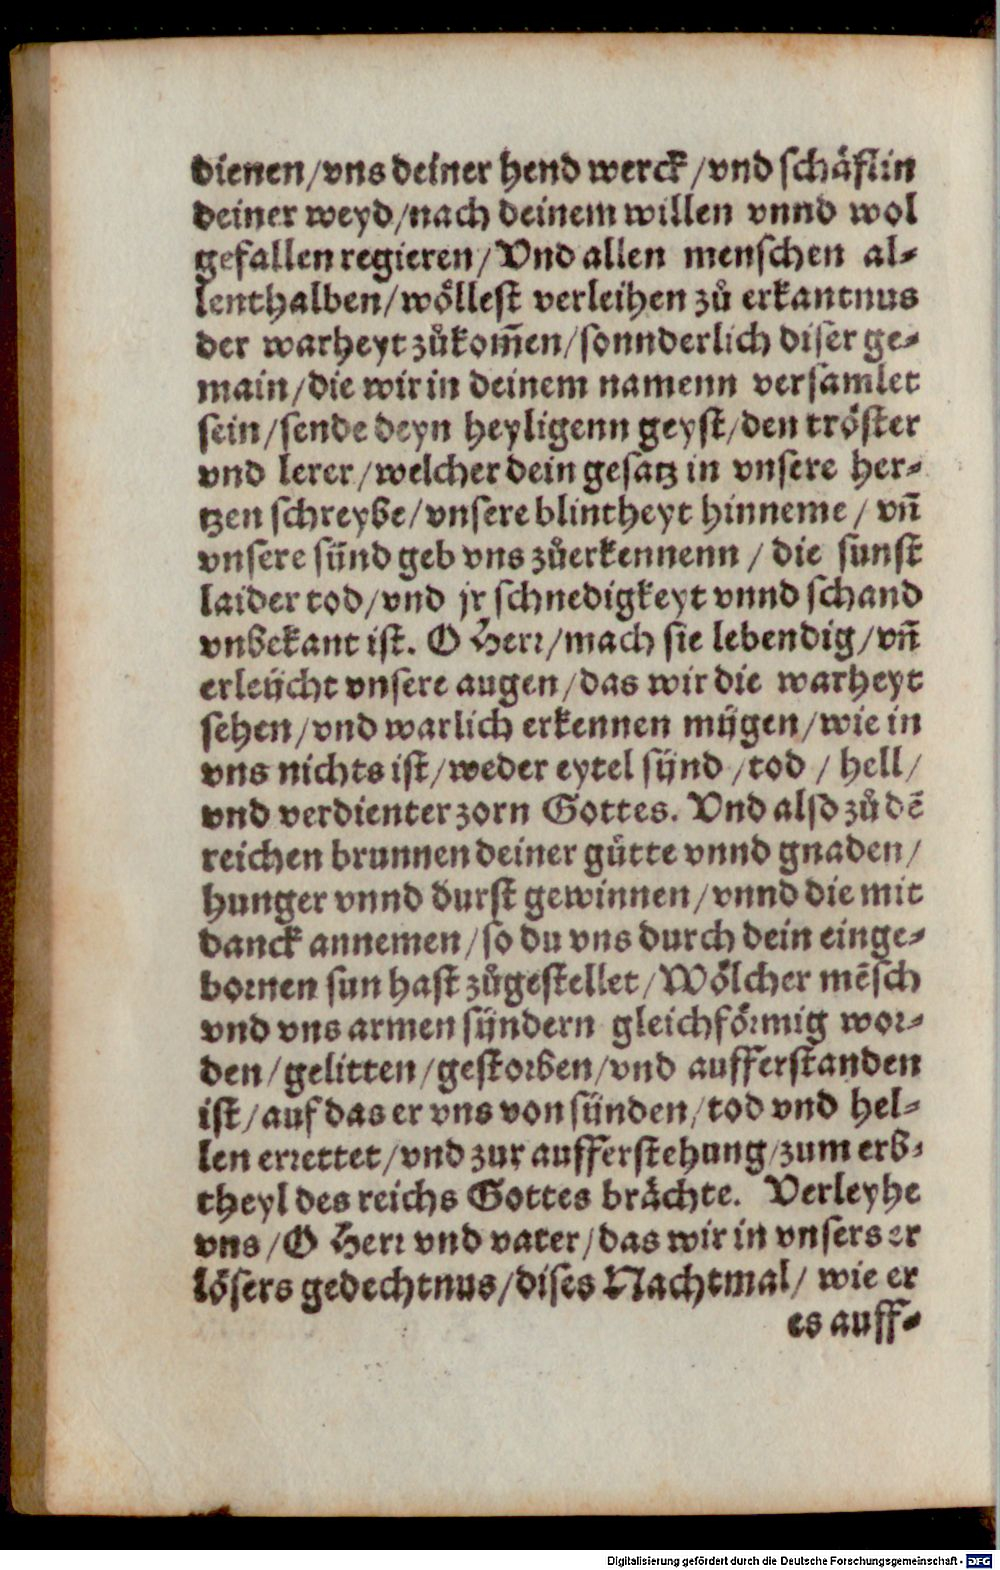 dienen/vns deiner hend werck/vnd schäflin
deiner weyd/nach deinem willen vnnd wol
gefallen regieren/Vnd allen menschen al⸗
lenthalben/wöllest verleihen zů erkantnus
der warheyt zůkom̃en/sonnderlich diser ge⸗
main/die wir in deinem namenn versamlet
sein/sende deyn heyligenn geyst/den tröster
vnd lerer/welcher dein gesatz in vnsere her⸗
tzen schreybe/vnsere blintheyt hinneme/vñ
vnsere sünd geb vns zůerkennenn/die sunst
laider tod/vnd jr schnedigkeyt vnnd schand
vnbekant ist. O Herr/mach sie lebendig/vñ
erleücht vnsere augen/das wir die warheyt
sehen/vnd warlich erkennen mügen/wie in
vns nichts ist/weder eytel sünd/tod/hell/
vnd verdienter zorn Gottes. Vnd also zů dē
reichen brunnen deiner gütte vnnd gnaden/
hunger vnnd durst gewinnen/vnnd die mit
danck annemen/so du vns durch dein einge⸗
bornen sun hast zůgestellet/Wölcher mēsch
vnd vns armen sündern gleichförmig wor⸗
den/gelitten/gestorben/vnd aufferstanden
ist/auf das er vns von sünden/tod vnd hel⸗
len errettet/vnd zur aufferstehung/zum erb⸗
theyl des reichs Gottes brächte. Verleyhe
vns/O Herr vnd vater/das wir in vnsers er
lösers gedechtnus/dises Nachtmal/wie er
es auff⸗
Digitalisierung gefördert durch die Deutsche Forschungsgemeinschaft - DFG